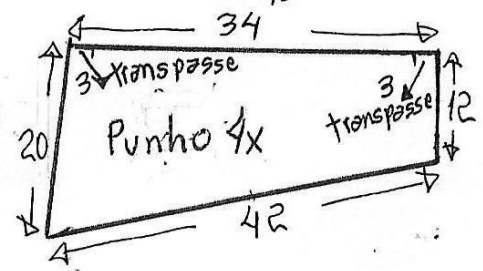 34
3 transpasse
3
transpasse
12
20
Punho 4x
42